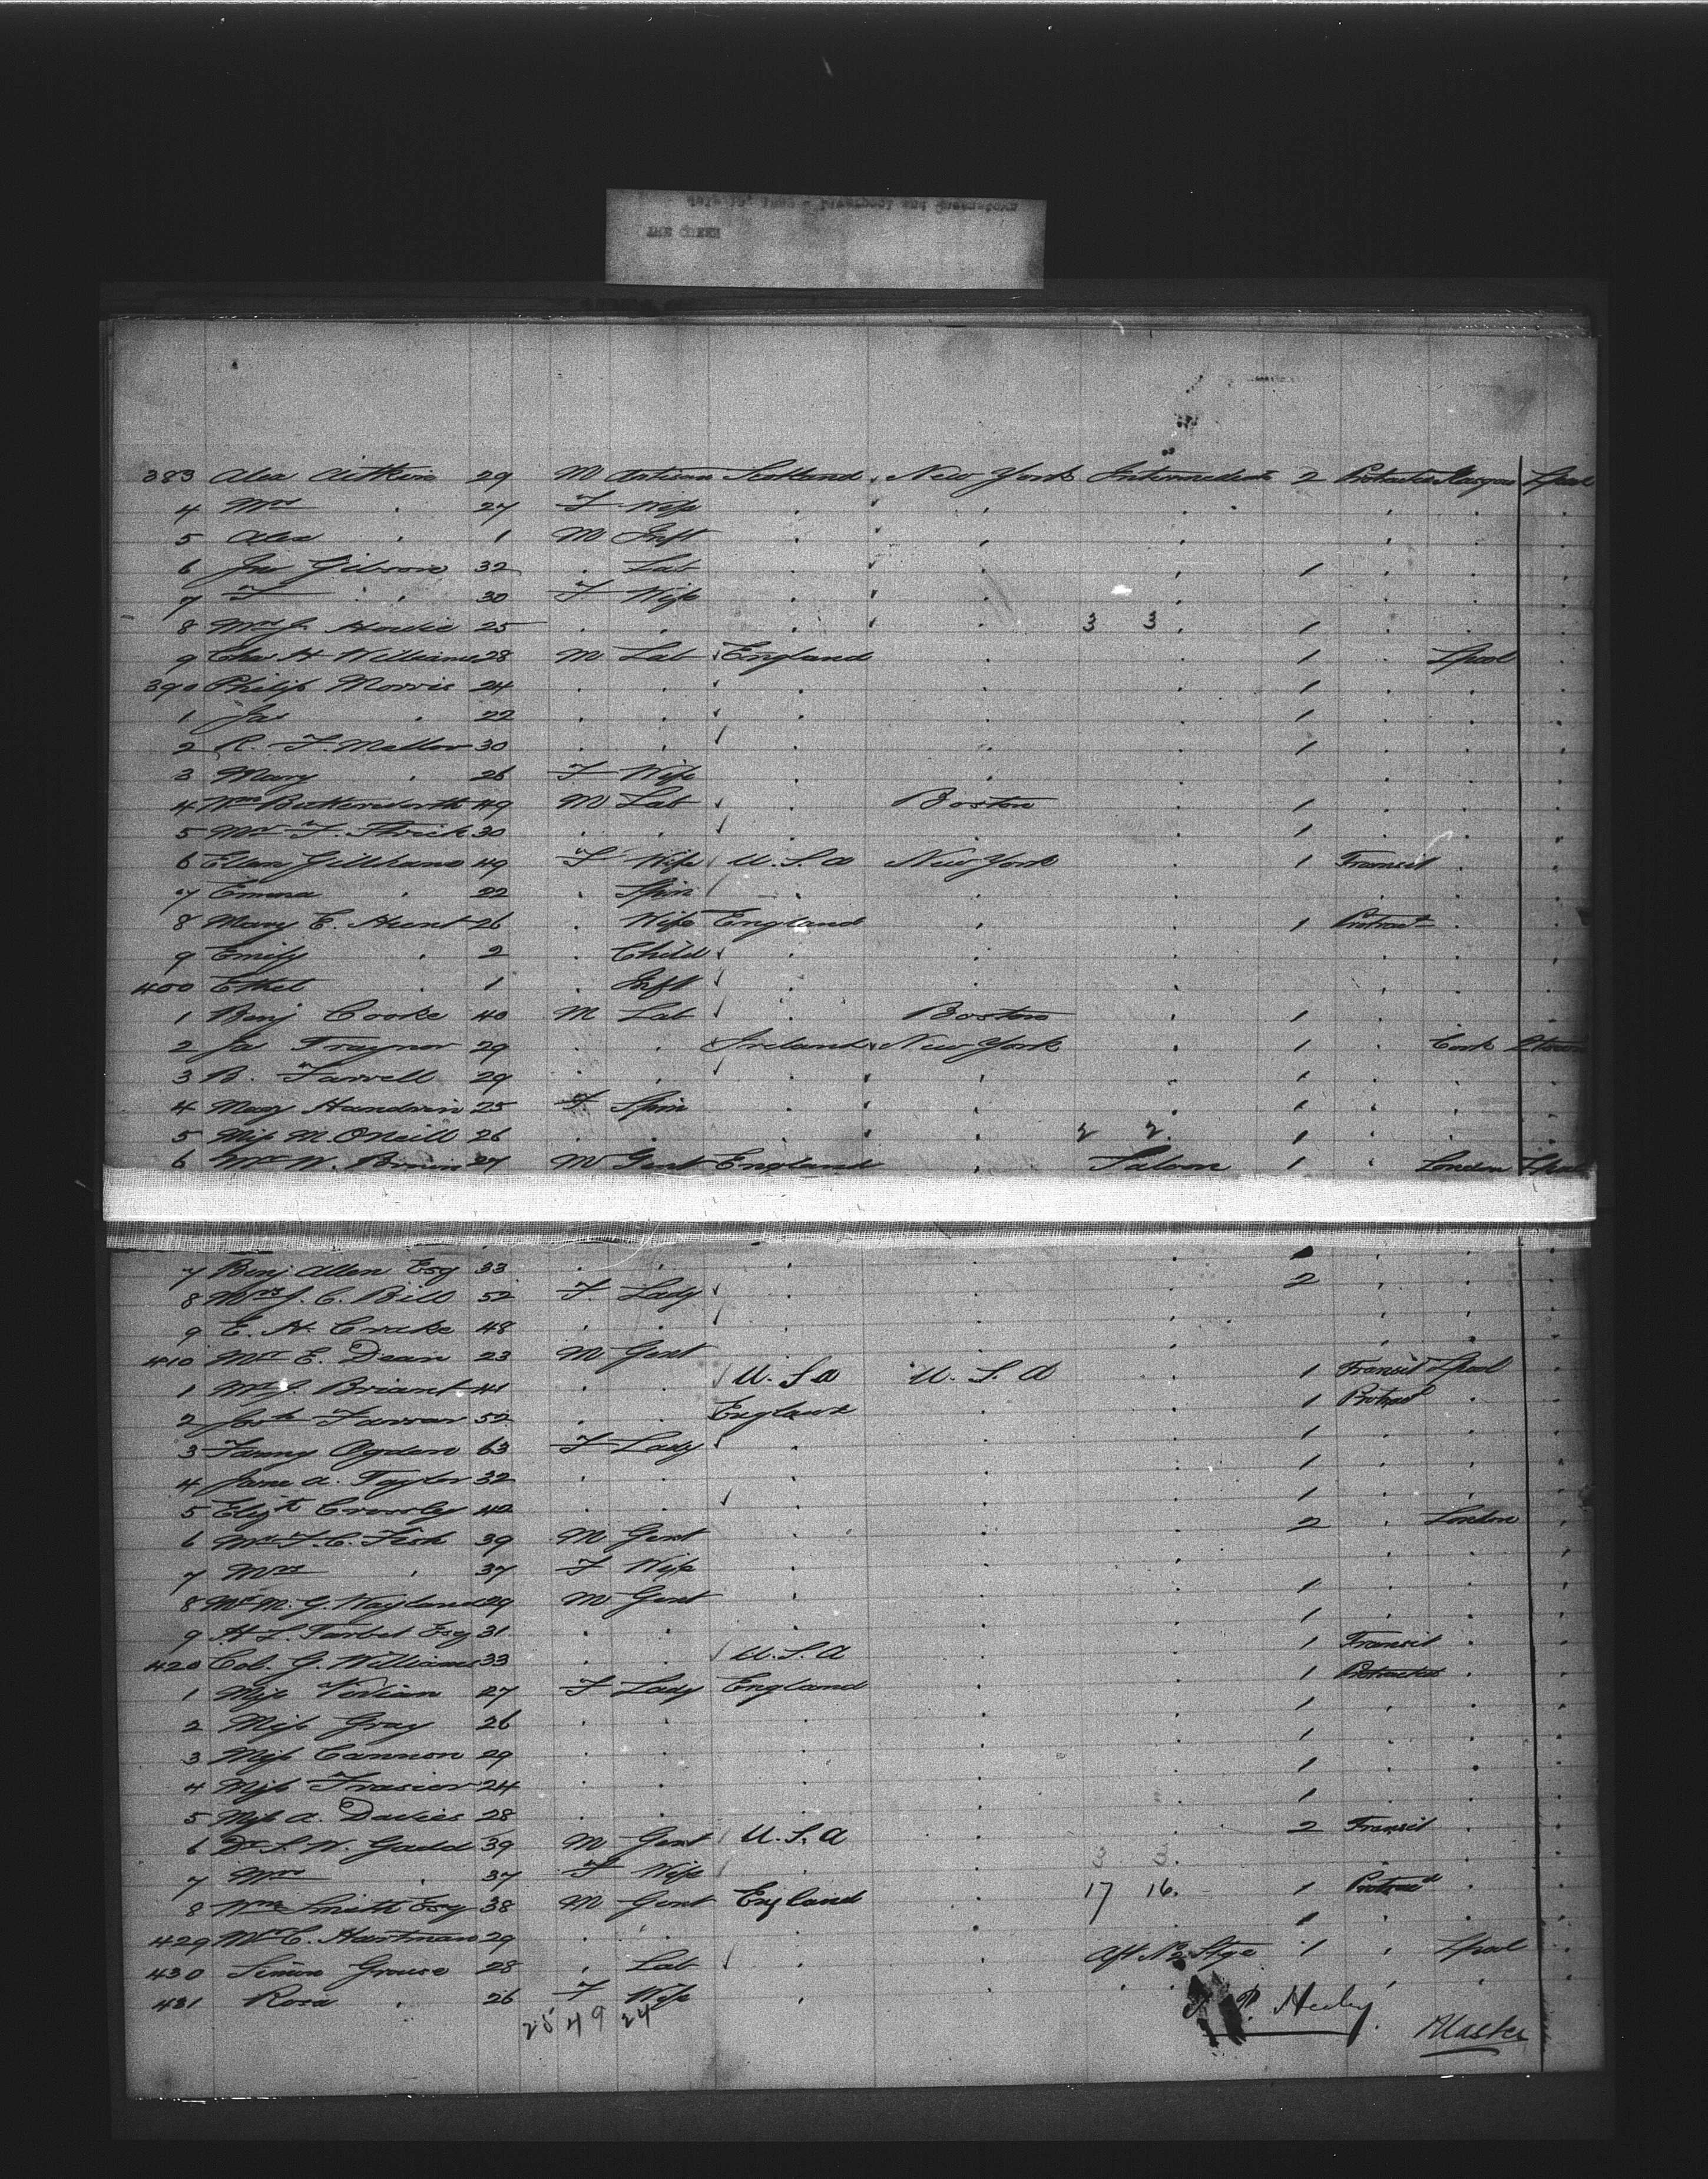 383 Alex Aitkin 29 M Artisan Scotland New York Intermediate 2 Protracted Glasgow Lpool
4 Mrs . 27 F Wife . . . . .
5 Alex . 1 M Inft . . . . .
6 Jno Gibson 32 . Lab . . . 1 . . .
7 F . . 30 F Wife . . . . . .
8 Mrs J. Howie 25 . . . . 3 3 . 1 . . .
9 Chas H Williams 28 M Lab England . . 1 . Lpool .
390 Philip Morris 24 . . . . . 1 . . .
1 Jas . 22 . . . . . 1 . . .
2 R. F. Mellor 30 . . . . . 1 . . .
3 Mary . 26 F Wife . . . . .
4 Wm Butterworth 49 M Lab . Boston . 1 . . .
5 Mr F. 30 . . . . . 1 . . .
6 Ellen Gillibans 49 F Wife U.S.A New York . 1 Transit . .
7 Emma . 22 . Spin . . . . . .
8 Mary E. Hunt 26 . Wife England . . 1 Protract . .
9 Emily . 2 . Child . . . . . .
400 Ethel . 1 . Inft . . . . . .
1 Benj Cooke 40 M Lab . Boston . 1 . . .
2 Jas Traynor 29 . . Ireland New York . 1 . Cork Qtown
3 B. Farrell 29 . . . . . 1 . . .
4 Mary Handrin 25 F Spin . . . 1 . . .
5 Miss M. ONeill 26 . . . . 2 2. 1 . . .
6 Mr W. 27 M Gent England . Saloon 1 . London Lpool
7 Benj Allen Esq 33 . . . . . 1 . . .
8 Mrs J. C. Bill 52 F. Lady . . . 2 . . .
9 E. H. Crake 48 . . . . . . . .
410 Mr E. Dean 23 M Gent . . . . . .
1 Mr J. Briant 41 . . U.S.A U.S.A . 1 Transit Lpool .
2 Josh Farrar 52 . . England . . 1 Protract . .
3 Fanny Ogden 63 F Lady . . . 1 . . .
4 Jane A. Taylor 32 . . . . . 1 . . .
5 Elizth Crossley 40 . . . . . 1 . . .
6 Mr F. C. Fish 39 M Gent . . . 2 . London .
7 Mrs . 37 F Wife . . . . . .
8 Mr M. G. Wayland 29 M Gent . . . 1 . . .
9 H L. Tarbet Esq 31 . . . . . 1 . . .
420 Col. G. Williams 33 . . U.S.A . . 1 Transit . .
1 Miss Vivian 27 F Lady England . . 1 Protracted . .
2 Miss Gray 26 . . . . . 1 . . .
3 Miss Cannon 29 . . . . . 1 . . .
4 Miss Frasier 24 . . . . . 1 . . .
5 Miss A. Davies 28 . . . . . 1 . . .
6 Dr S. W. Gadd 39 M Gent U.S.A . . 2 Transit . .
7 Mrs . 37 F Wife . . 3 3. . . .
8 Wm Smith Esq 38 M Gent England . 17 16. 1 Protracd . .
429 Mr C. Hartman 29 . . . . . 1 . . .
430 Simon Grouse 28 . Lab . . Aft No 2 Stge 1 . Lpool .
431 Rosa . 26 F Wife . . . . . .
25 49 24
P. Heeley.
Master